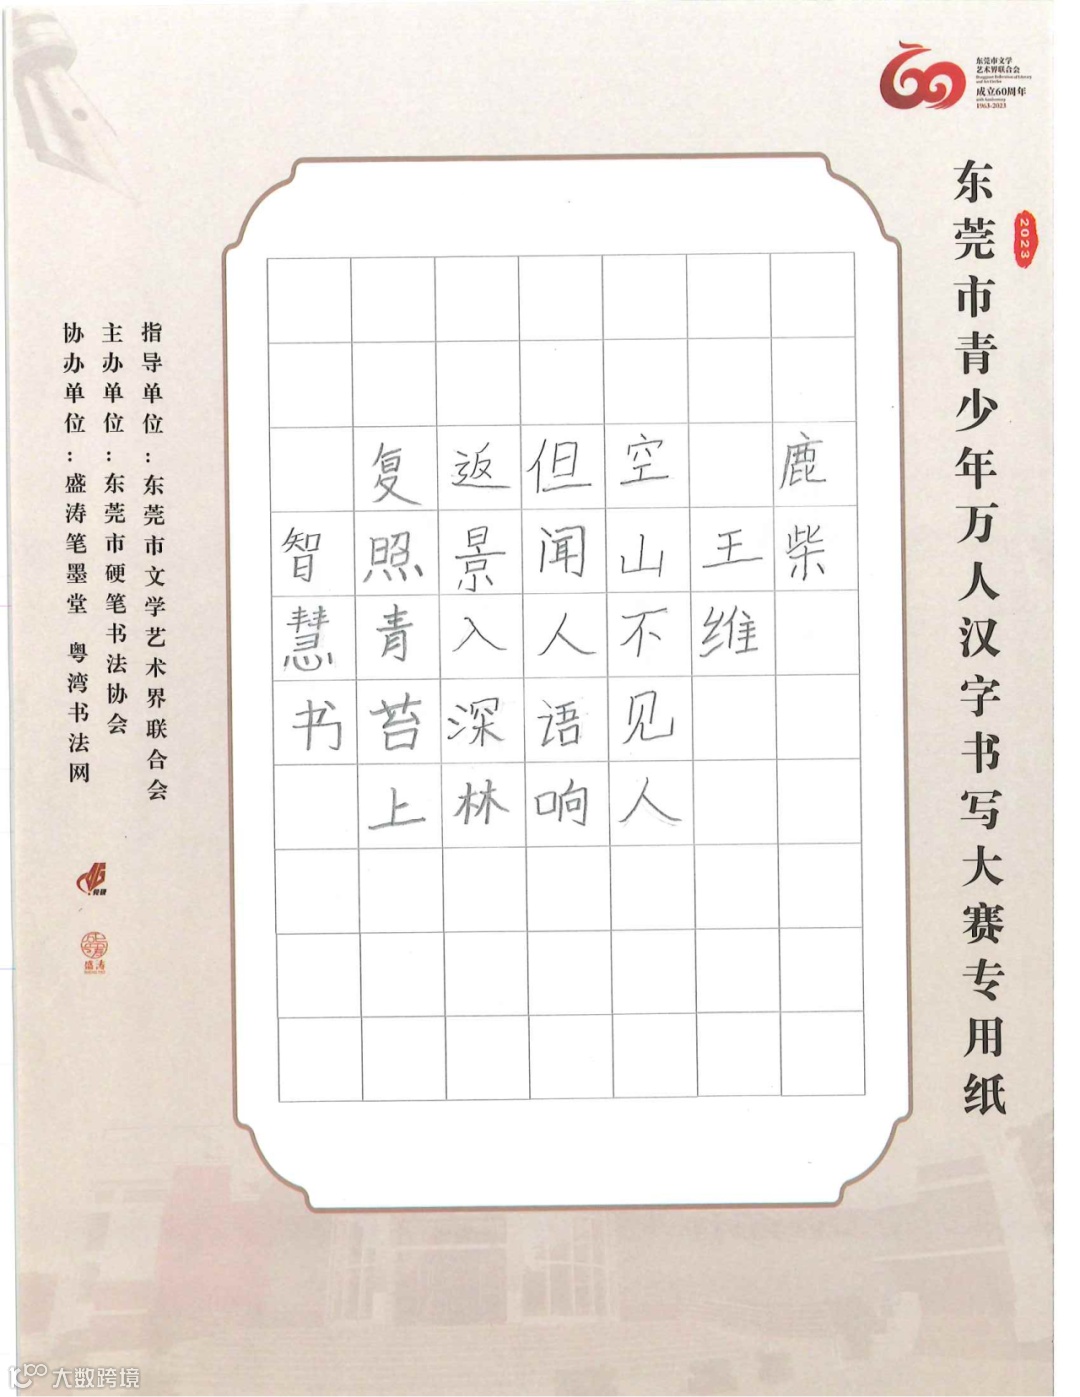 东莞市文学
艺术界联合会
成立60周年
1963-2023
2023
东莞市青少年万人汉字书写大赛专用纸
鹿柴
王维
空山不见人
但闻人语响
返景入深林
复照青苔上
智慧书
指导单位：东莞市文学艺术界联合会
主办单位：东莞市硬笔书法协会
协办单位：盛涛笔墨堂 粤湾书法网
盛涛
大数跨境